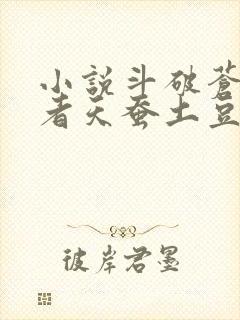 小說斗破蒼
者天蚕土豆
彼岸君墨